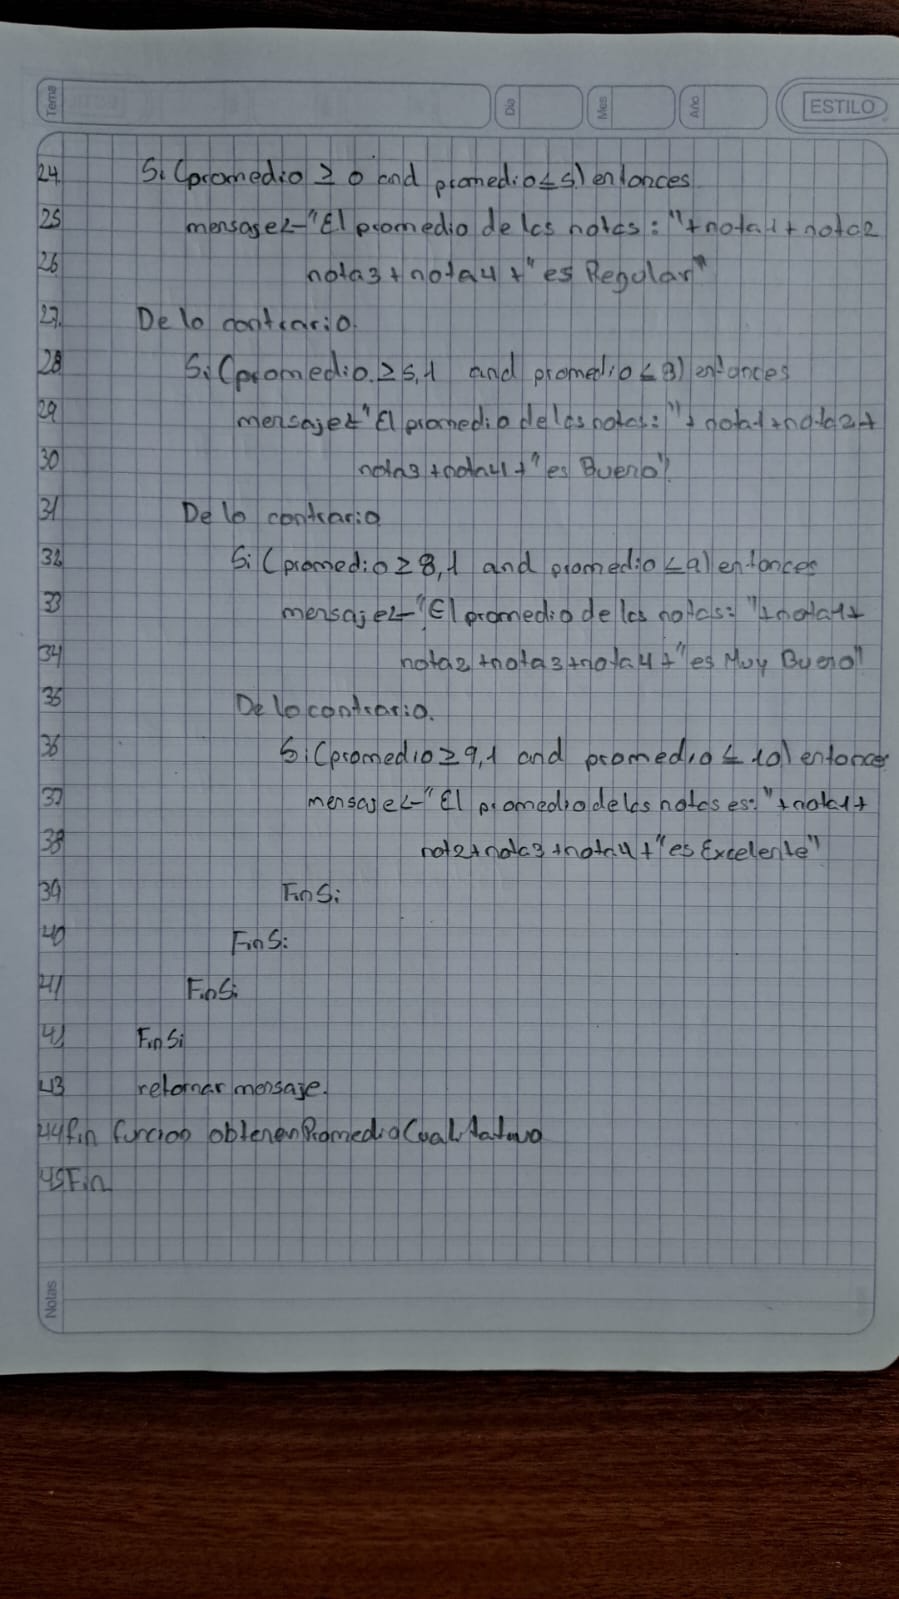 Tema
Dia
Mes
Año
ESTILO
24 Si (promedio ≥ 0 and promedio ≤ 5) entonces
25 mensaje <- "El promedio de las notas: " + nota1 + nota2
26 nota3 + nota4 + "es Regular"
27. De lo contrario.
28 Si (promedio ≥ 5,1 and promedio ≤ 8) entonces
29 mensaje <- "El promedio de las notas: " + nota1 + nota2 +
30 nota3 + nota4 + "es Bueno"
31 De lo contrario
32 Si (promedio ≥ 8,1 and promedio ≤ 9) entonces
33 mensaje <- "El promedio de las notas: " + nota1 +
34 nota2 + nota3 + nota4 + "es Muy Bueno"
35 De lo contrario.
36 Si (promedio ≥ 9,1 and promedio ≤ 10) entonces
37 mensaje <- "El promedio de las notas es: " + nota1 +
38 not2 + nota3 + nota4 + "es Excelente"
39 Fin Si
40 Fin Si
41 Fin Si
42 Fin Si
43 retornar mensaje.
44 fin funcion obtenerPromedioCualitativo
45 Fin
Notas